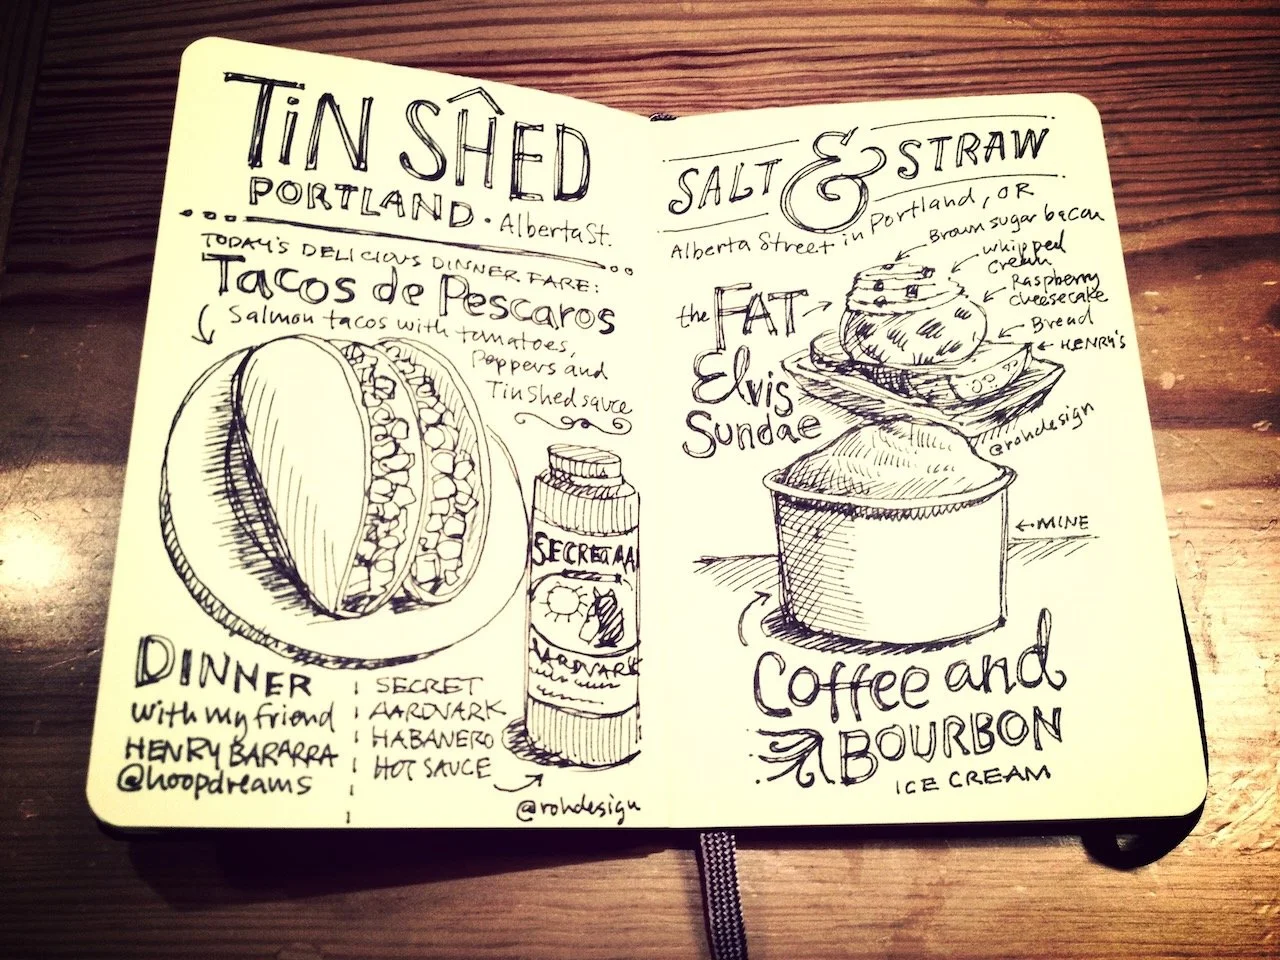 TiN SHED
PORTLAND · Alberta St.
TODAY'S DELICIOUS DINNER FARE:
Tacos de Pescaros
Salmon tacos with tomatoes,
Peppers and
Tin Shed sauce
SECRET AA
AARDVARK
DINNER
with my friend
HENRY BARARRA
@hoopdreams
SECRET
AARDVARK
HABANERO
HOT SAUCE
@rohdesign
SALT & STRAW
Alberta Street in Portland, OR
Brown sugar bacon
whipped
cream
Raspberry
cheesecake
Bread
HENRY'S
the FAT
Elvis
Sundae
@rohdesign
MINE
Coffee and
BOURBON
ICE CREAM